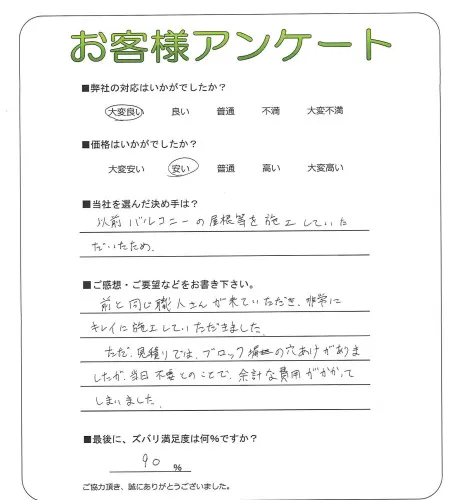 お客様アンケート
■弊社の対応はいかがでしたか？
大変良い 良い 普通 不満 大変不満
■価格はいかがでしたか？
大変安い 安い 普通 高い 大変高い
■当社を選んだ決め手は？
以前バルコニーの屋根等を施工していた
だいたため。
■ご感想・ご要望などをお書き下さい。
前と同じ職人さんが来ていただき、非常に
キレイに施工していただきました。
ただ、見積りでは、ブロック塀の穴あけがありま
したが、当日不要とのことで、余計な費用がかかって
しまいました。
■最後に、ズバリ満足度は何%ですか？
90 %
ご協力頂き、誠にありがとうございました。